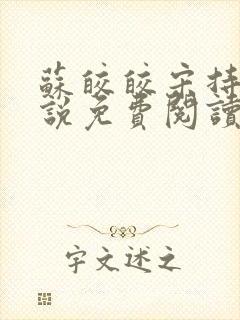 蘇皎皎宋持
說免費閱讀
宇文述之